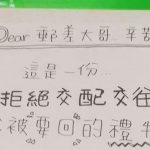 Dear 郵差大哥 辛苦
這是一份...
拒絕交配交往
被要回的禮